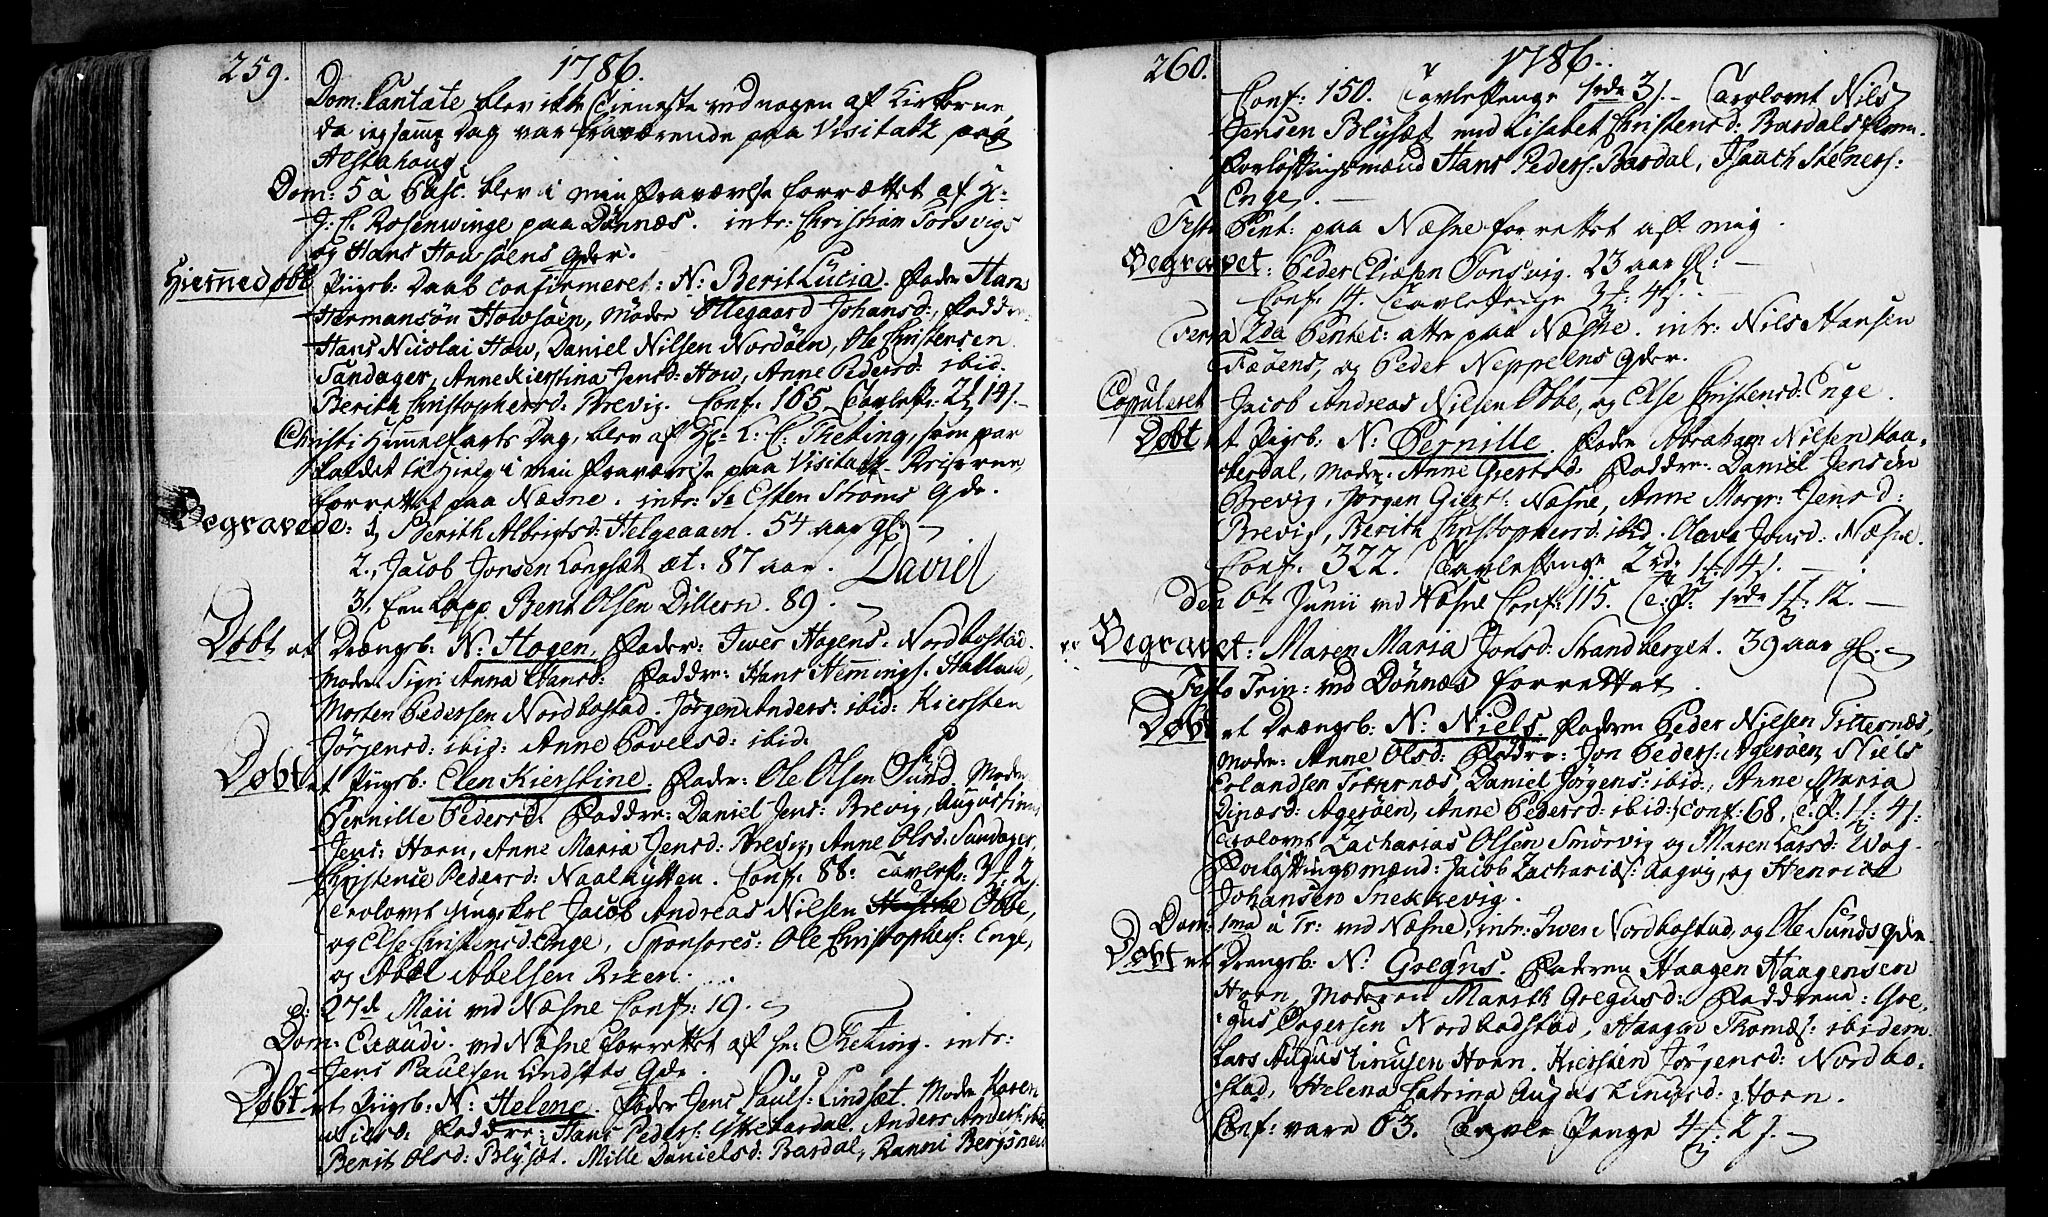 259. 1786.
Dom: Cantate blev ikke Tieneste ved nogen af Kirkerne,
da ieg samme Dag var fraværende paa Visitatz paa
Alstahoug.
Dom: 5 à Pasc. blev i min Fraværelse forrettet af Hr:
J: C. Rosenwinge paa Dønnæs. intr: Christian Torsvigs
og Hans Howsøens qder.
Hiemmedøbt Pigeb: Daab confirmeret: N: Berit Lucia. Fader Hans
Hermansøn Howsøen, Moder Ollegaard Johansd:, Faddr:
Hans Nicolai How, Daniel Nilsen Nordøen, Ole Christensen
Sandager, Anne Kierstina Jensd: How, Anne Pedersd: ibid.
Berith Christophersd: Brevig. Conf. 165. Tavlep: 2 14 s.
Christi Himmelfarts Dag, blev af Hr: L: C. Theting, som var
kaldet til Hielp i min Fraværelse paa Visitatz-Reiserne
forrettet paa Næsne. intr: Sa Esten Stroms qde.
Begravede: 1, Berith Albrigtsd: Helgeaaen. 54 aar gl:
2., Jacob Jonsen Langsæt æt: 87 aar. David
3, Een Lapp Bent Olsen Dillern. 89.
Døbt et Drængb: N: Hagen, Fader: Iwer Hagens: Nordbostad.
Moder Sigri Anna Hansd: Faddre: Hans Hemmings. Kalland,
Morten Pedersen Nordbostad. Jørgen Anders: ibid: Kiersten
Jørgensd: ibid: Anne Povelsd: ibid.
Døbt et Pigeb: Elen Kierstine. Fader: Ole Olsen Sund. Moder
Pernille Pedersd. Faddre: Daniel Jens: Brevig, Augustinus
Jens: Horn, Anne Maria Jensd: Brevig, Anne Olsd: Sandager,
Christence Pedersd: Naalhytten. Conf. 88: Tavlep: 3 2 s.
Trolovet Ungekrl Jacob Andreas Nilsen Obbe,
og Else Christensd: Enge, Sponsores: Ole Christophers: Enge,
og Abel Abelsen
d: 27de Maii ved Næsne Conf: 19.
Dom: Exaudi. ved Næsne forrettet af hr: Theting. intr:
Jens Paulsen Lindsets qde.
Døbt et Pigeb: N: Helene. Fader Jens Pauls: Lindsæt. Moder Karen
Nilsd: Faddre: Hans Peders: Anders Anders: ibid
Berit Olsd: Blysæt. Mille Danielsd: Bardal, Ranni Bergsnev
260. 1786.
Conf: 150. Tavlepenge 1rdr 3 s. Trolovet Nils
Jensen Blysæt med Lisabet Christensd: Bardalsflem.
Forløftningsmænd Hans Peders: Bardal, Isach Steners:
Enge.
Festo Pent: paa Næsne forrettet af mig.
Begravet: Peder Eliæsen Tonsvig. 23 aar gl:
Conf: 14. Tavlepenge 3 : 4 s.
Feria 2da Pentec: atter paa Næsne. intr: Nils Hansen
og Peder Neppelns qder.
Copuleret Jacob Andreas Nielsen Obbe, og Else Christensd: Enge.
Døbt et Pigeb: N: Pernille. Fader Abraham Nilsen Kaa-
terdal, Moder: Anne Gierted: Faddre: Daniel Jensen
Brevig, Jørgen Næsne, Anne Margr: Jensd:
Brevig, Berith Christophersd: ibid. Olava Jonsd: Næsne.
Conf: 322. Tavlepenge 2rd: 1 : 4 s.
Den 6te Junii ved Næsne Conf: 115. T: P: 1rdr 1 : 12.
Begravet: Maren Maria Jonsd: Strandberget. 39 aar gl.
Festo Trin: ved Dønnæs forrettet.
Døbt et Drængb: N: Niels. Faderen Peder Nielsen Titternæs,
Moder: Anne Olsd: Faddre: Jon Peders: Agerøen, Niels
Erlandsen Titternæs, Daniel Jørgens: ibid., Anne Maria
Dinæsd: Agerøen, Anne Pedersd: ibid: Conf: 68, T: P: 1 : 4 s.
Trolovet Zacharias Olsen Smørvig og Maren Larsd: Wog.
Forløftningsmænd: Jacob Zachariæs: Aagvig, og Henrick
Johansen Snekkevig.
Dom: 1ma à Tr: ved Næsne, intr: Iwer Nordbostad, og Ole Sunds qder.
Døbt et Drengb: N: Gregus. Faderen Haagen Haagensen
Horn, Moderen Marith Gregusd: Faddrene: Gre-
gus Nordbodstad, Haagen Thomæs: ibidem.
Lars Augustinusen Horn. Kiersten Jørgensd: Nordbo-
stad, Helena Catrina Augustinusd: Horn.
Conf: vare 63. Tavle Penge 4 : 2 s.